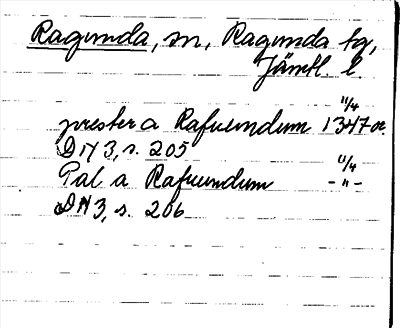 Ragunda, sn, Ragunda tg,
Jämtl. l.
11/4
prester a Rafuundum 1347 or.
DN 3, s. 205
11/4
Pal a Rafuundum -"-
DN 3, s. 206